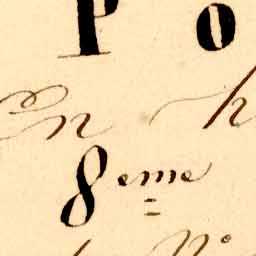 P o
En h
8eme